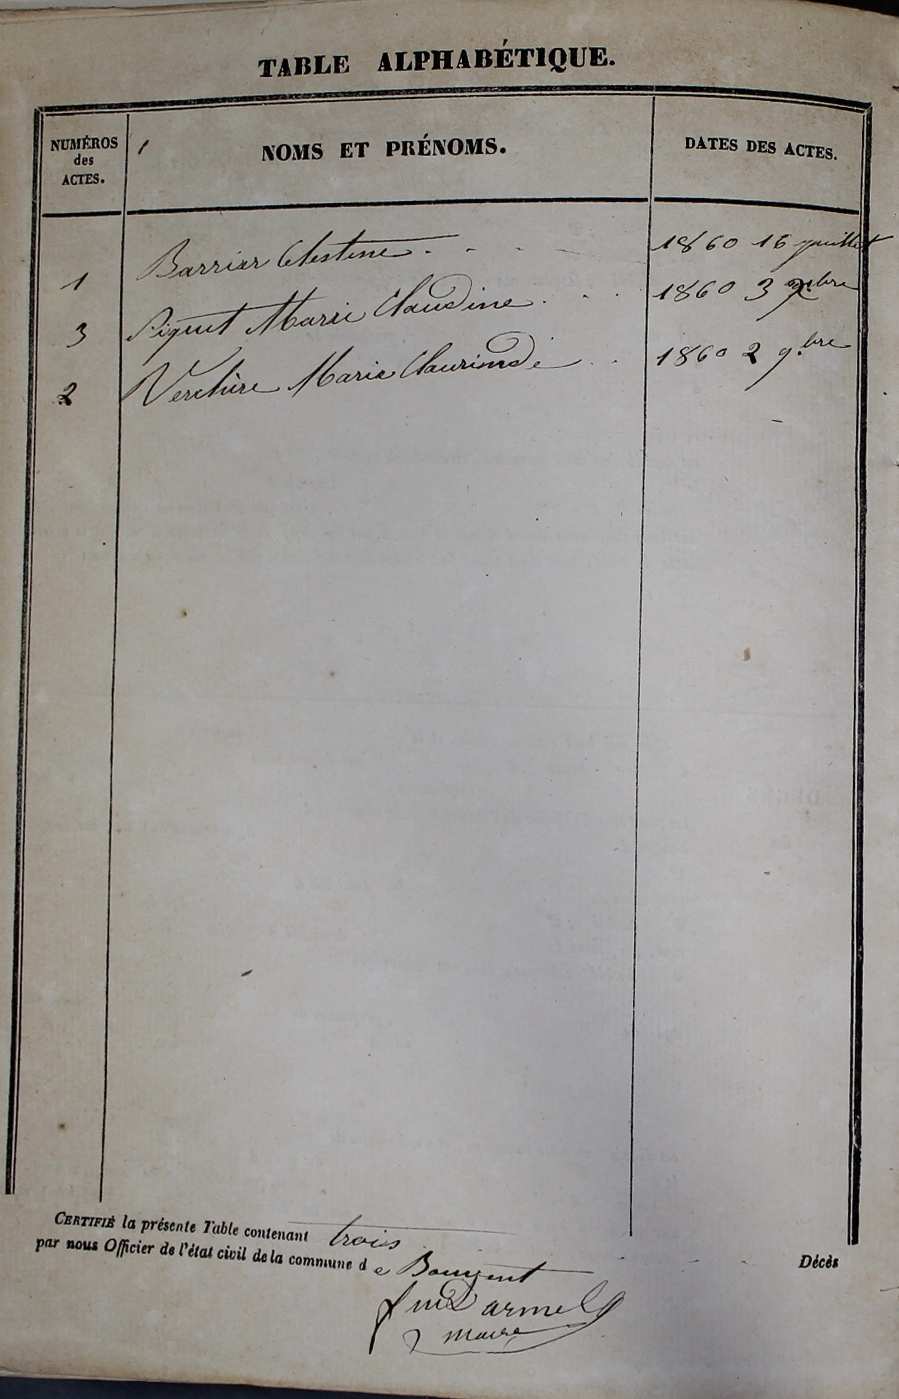 TABLE ALPHABÉTIQUE.
NUMÉROS des ACTES. NOMS ET PRÉNOMS. DATES DES ACTES.
1 Barrier Célestine 1860 16 juillet
3 Piquet Marie Claudine 1860 3 xbre
2 Verchère Marie Claurinde 1860 2 9.bre
CERTIFIÉ la présente Table contenant trois
par nous Officier de l'état civil de la commune de Décès
maire